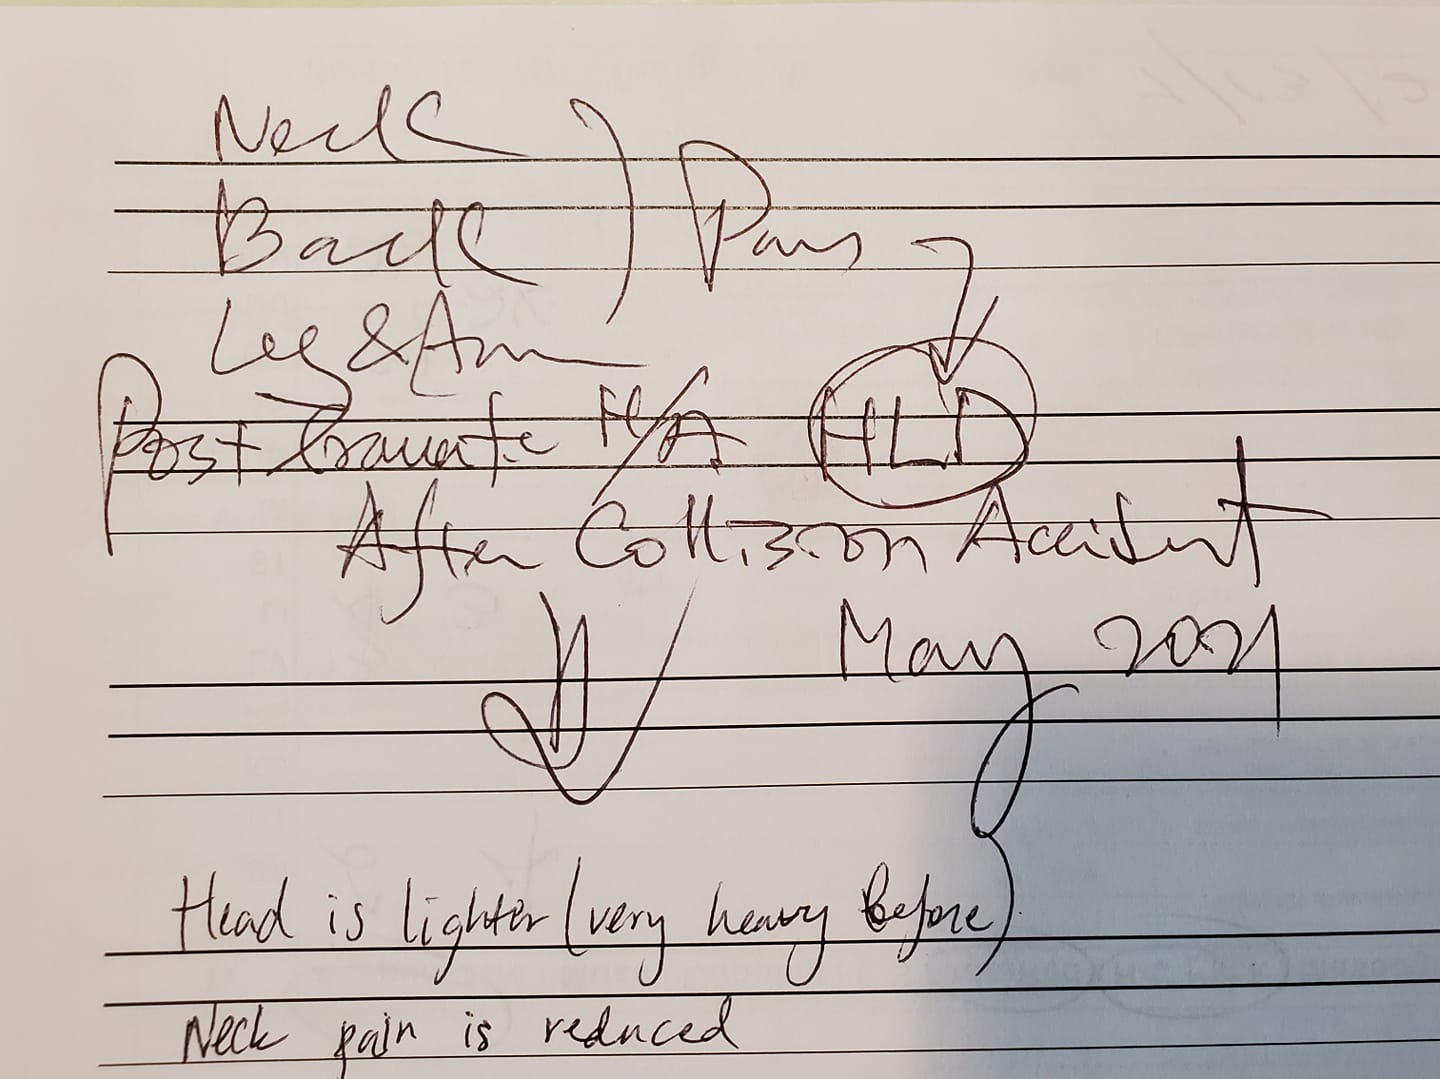 Neck
Back ) Pain
Leg & Arm
Post Traumatic H/A HLD
After Collision Accident
May 2021
Head is lighter (very heavy before)
Neck pain is reduced